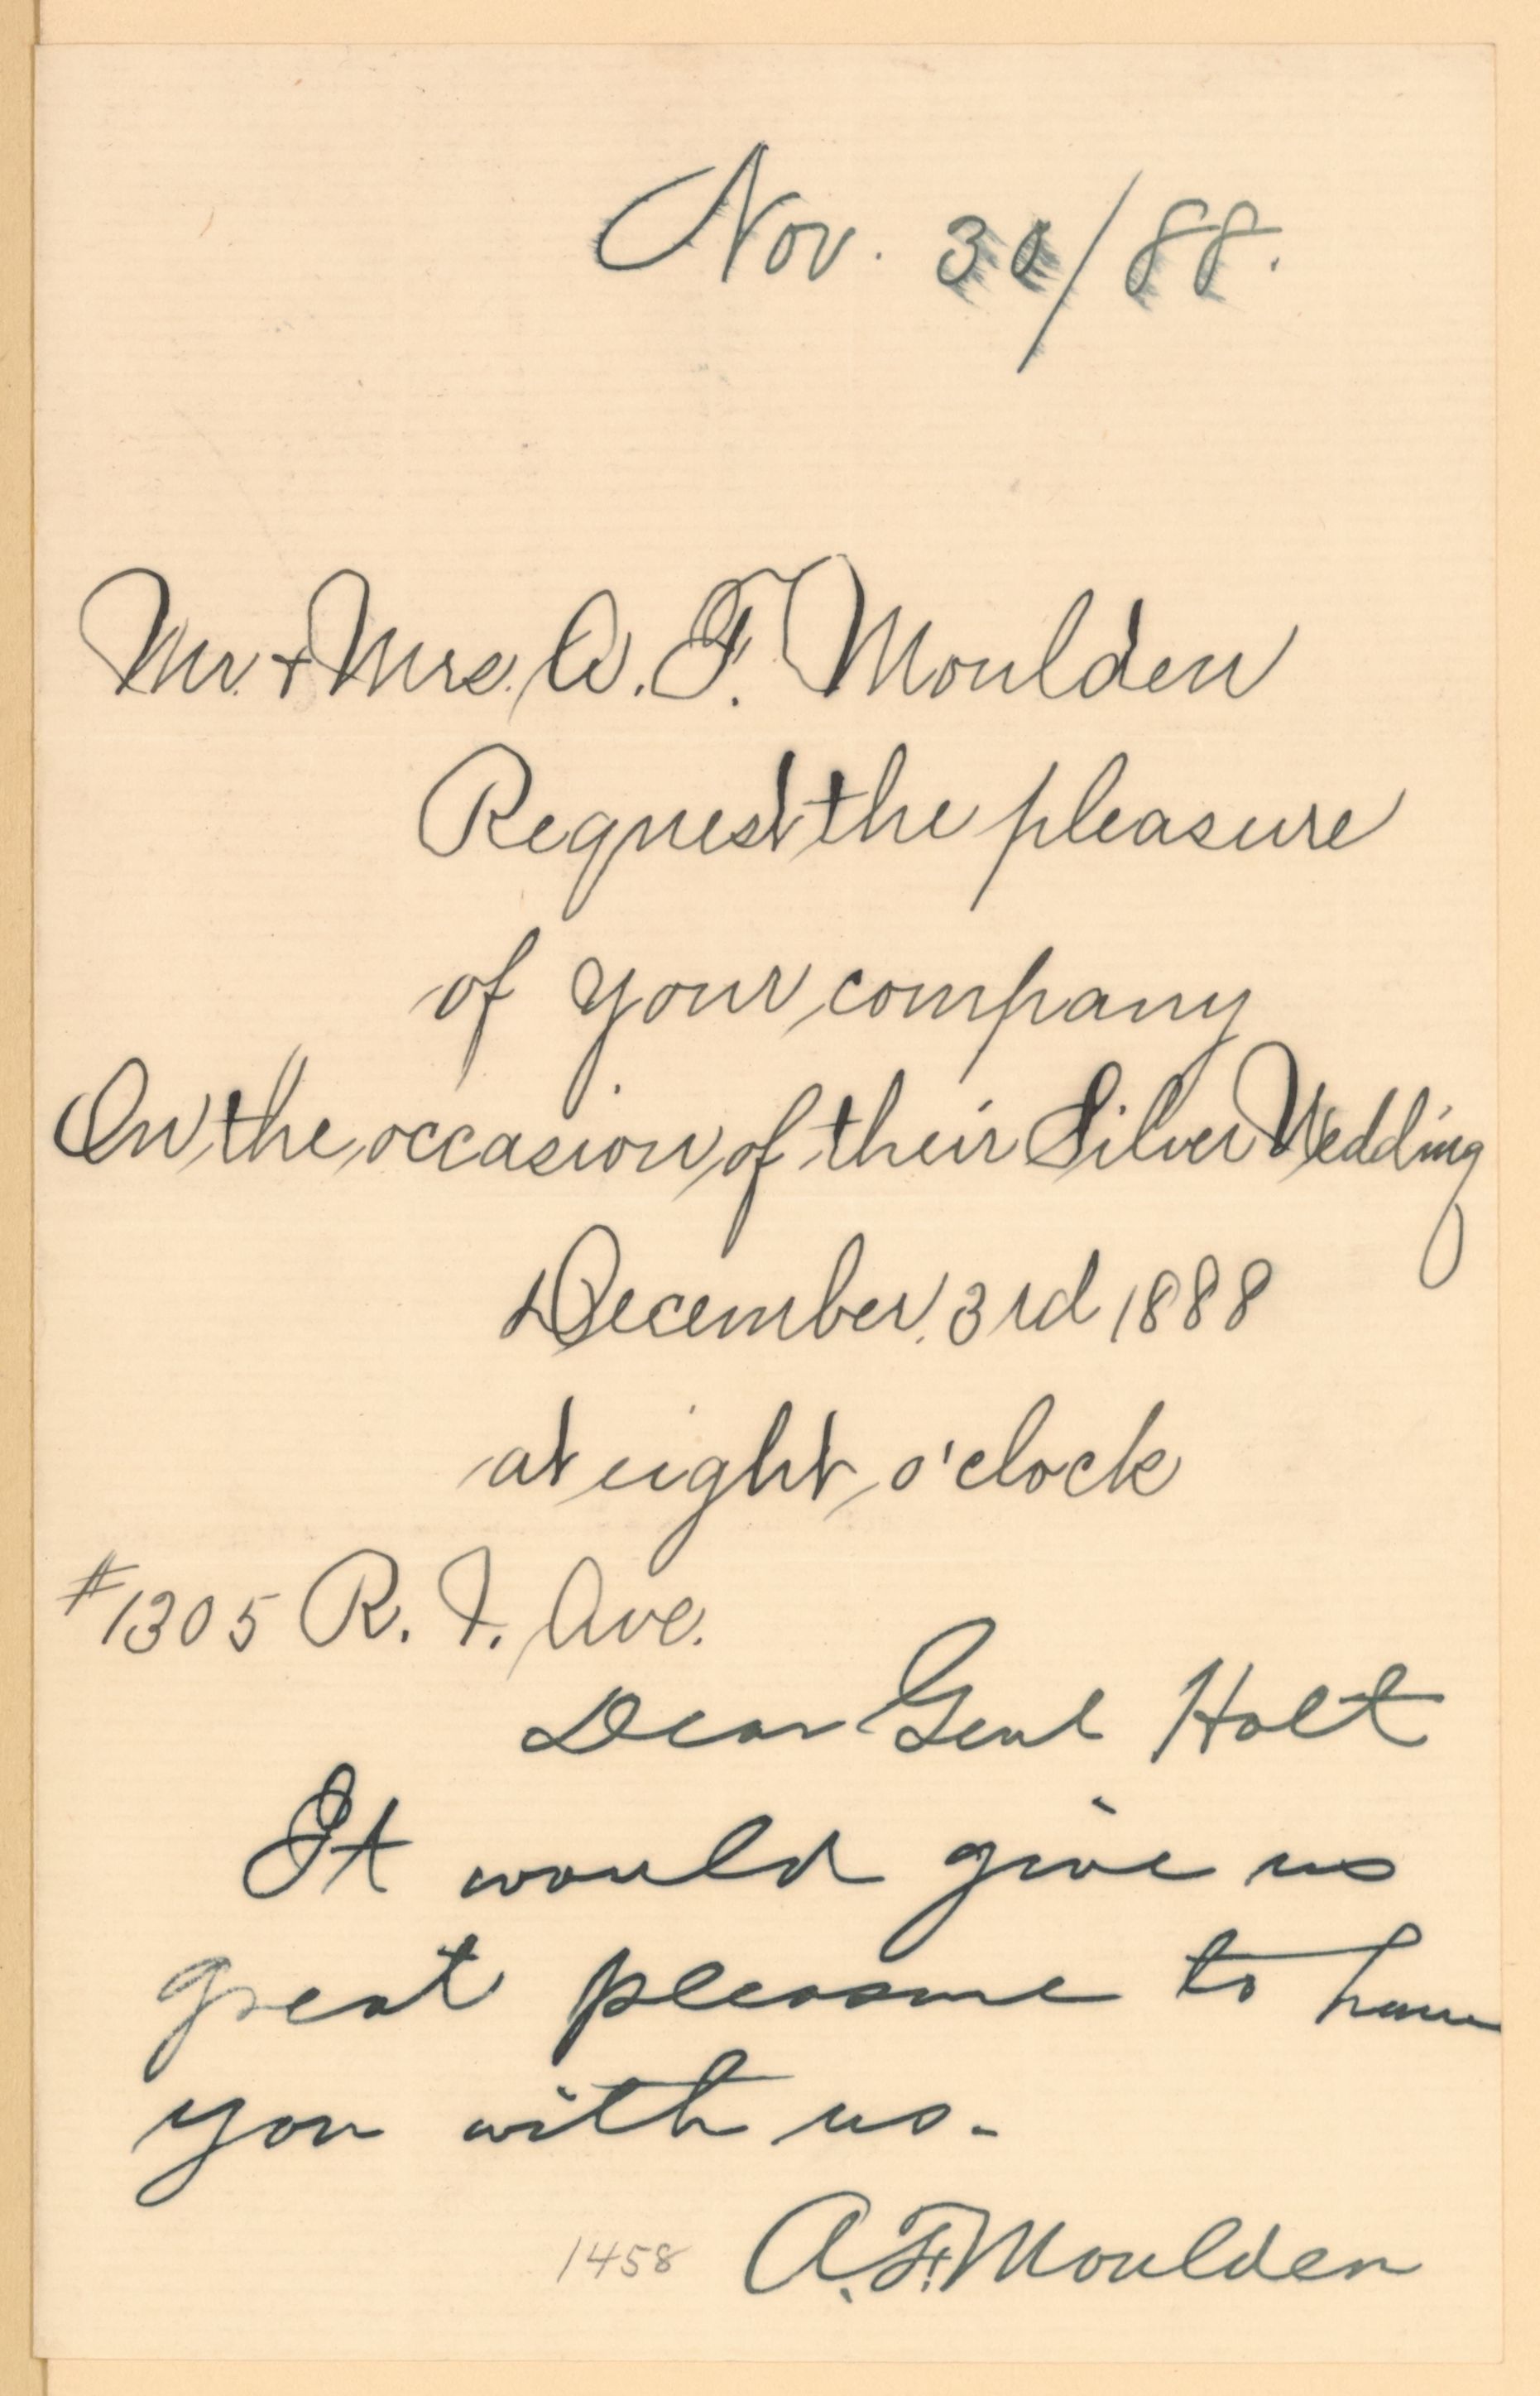 Nov. 30/88.
Mr. + Mrs. A. F. Moulden
Request the pleasure
of your company
On the occasion of their Silver Wedding
December 3rd 1888
at eight o'clock
#1305 R. I. Ave.
Dear Genl Holt
It would give us
great pleasure to have
you with us.
1458 A. F. Moulden